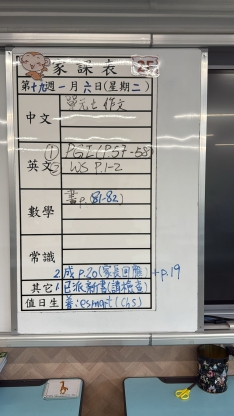 家課表
第十九週一月六日(星期二)
中文
單元七 作文
英文
① PGE(P.57-58)
② WS P.1-2
數學
書p.(81-82)
常識
2. 成p.20(家長回應)+p.19
其它 1. 已派新書(請檢查)
值日生